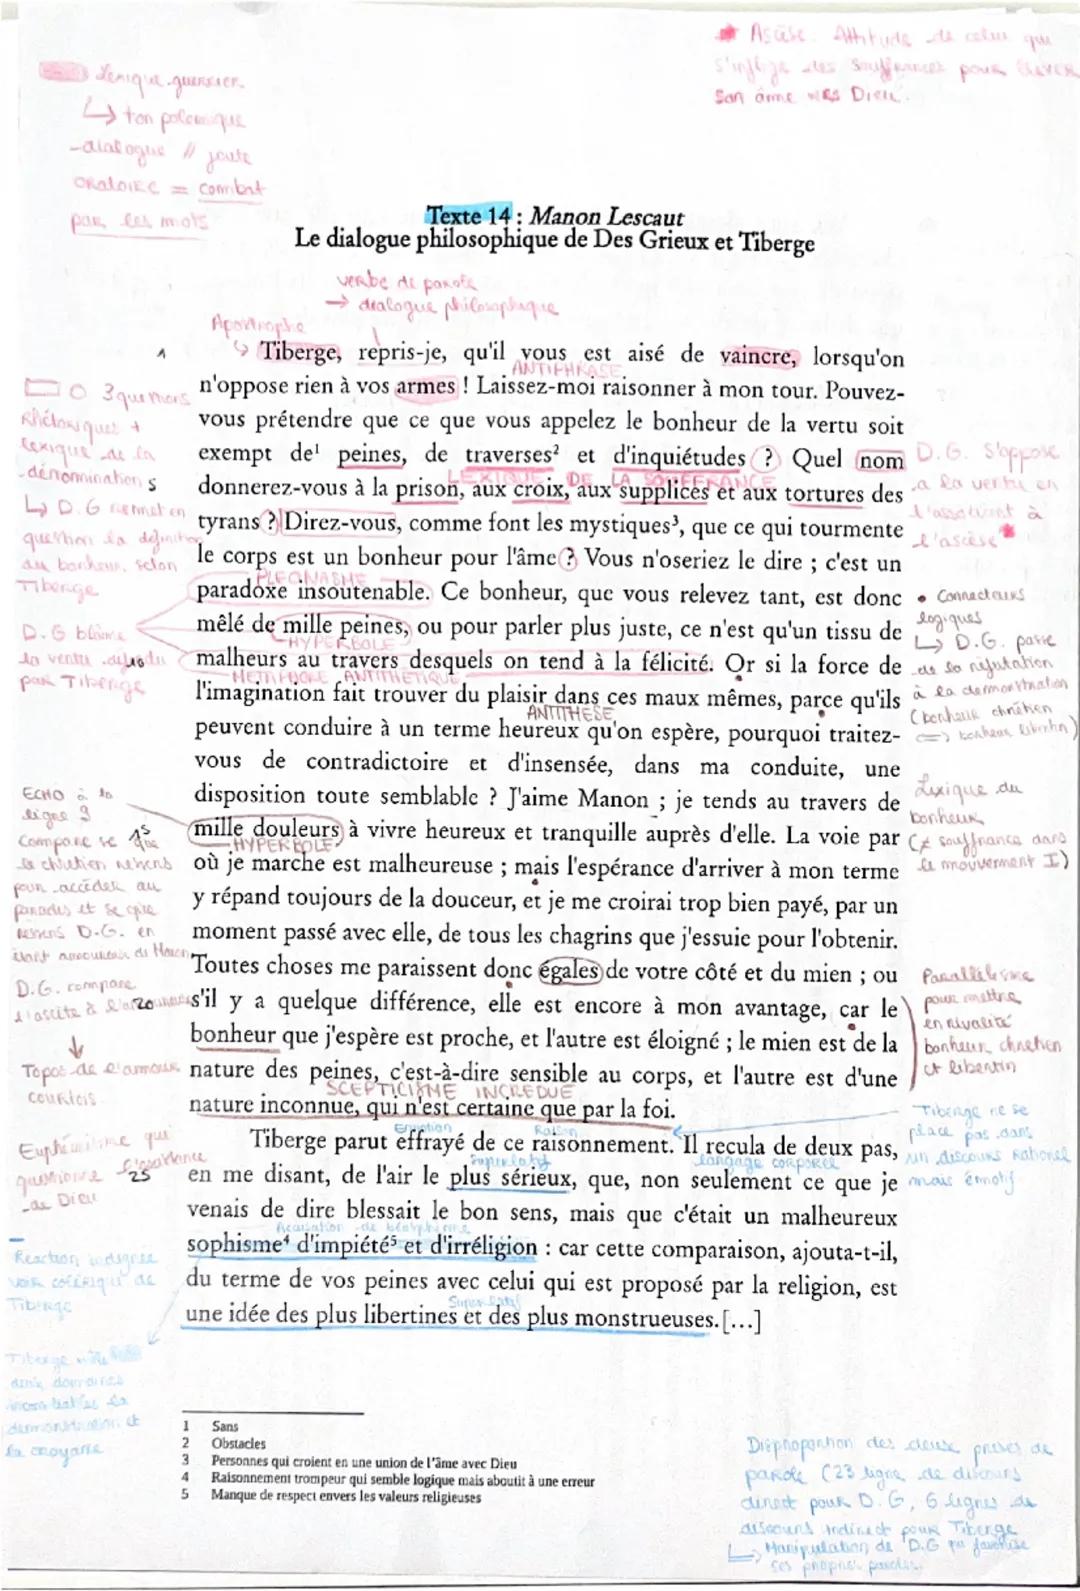 * Ascèse. Attitude de celui qui
s'inflige des souffrances pour élever
son âme vers Dieu.
Lexique guerrier
↳ ton polémique
-dialogue // joute
oratoire = combat
par les mots
Texte 14 : Manon Lescaut
Le dialogue philosophique de Des Grieux et Tiberge
verbe de parole
→ dialogue philosophique
Apostrophe
Tiberge, repris-je, qu'il vous est aisé de vaincre, lorsqu'on
ANTIPHRASE
n'oppose rien à vos armes ! Laissez-moi raisonner à mon tour. Pouvez-
vous prétendre que ce que vous appelez le bonheur de la vertu soit
exempt de¹ peines, de traverses² et d'inquiétudes ? Quel nom
LEXIQUE DE LA SOUFFRANCE
donnerez-vous à la prison, aux croix, aux supplices et aux tortures des
tyrans ? Direz-vous, comme font les mystiques³, que ce qui tourmente
le corps est un bonheur pour l'âme ? Vous n'oseriez le dire ; c'est un
PLEONASME
paradoxe insoutenable. Ce bonheur, que vous relevez tant, est donc
mêlé de mille peines, ou pour parler plus juste, ce n'est qu'un tissu de
HYPERBOLE
malheurs au travers desquels on tend à la félicité. Or si la force de
METAPHORE ANTITHETIQUE
l'imagination fait trouver du plaisir dans ces maux mêmes, parce qu'ils
ANTITHESE
peuvent conduire à un terme heureux qu'on espère, pourquoi traitez-
vous de contradictoire et d'insensée, dans ma conduite, une
disposition toute semblable ? J'aime Manon ; je tends au travers de
mille douleurs à vivre heureux et tranquille auprès d'elle. La voie par
HYPERBOLE
où je marche est malheureuse ; mais l'espérance d'arriver à mon terme
y répand toujours de la douceur, et je me croirai trop bien payé, par un
moment passé avec elle, de tous les chagrins que j'essuie pour l'obtenir.
Toutes choses me paraissent donc égales de votre côté et du mien ; ou
s'il y a quelque différence, elle est encore à mon avantage, car le
bonheur que j'espère est proche, et l'autre est éloigné ; le mien est de la
nature des peines, c'est-à-dire sensible au corps, et l'autre est d'une
SCEPTICISME INCREDUE
nature inconnue, qui n'est certaine que par la foi.
Emotion Raison
Tiberge parut effrayé de ce raisonnement. Il recula de deux pas,
Superlatif langage corporel
en me disant, de l'air le plus sérieux, que, non seulement ce que je
venais de dire blessait le bon sens, mais que c'était un malheureux
Acusation de blasphème
sophisme⁴ d'impiété⁵ et d'irréligion : car cette comparaison, ajouta-t-il,
du terme de vos peines avec celui qui est proposé par la religion, est
Superlatif
une idée des plus libertines et des plus monstrueuses. [...]
1
3 questions
Rhétoriques +
Lexique de la
dénomination
↳ D.G remet en
question la definition
du bonheur selon
Tiberge
5
D.G blâme
la vertu
par Tiberge
ECHO à la
ligne 9
Compare ce que
le chrétien
pour accéder au
paradis et ce que
D.G. en
étant amoureux de Manon
15
D.G. compare
l'ascète à l'amoureux
20
↓
Topos de l'amour
courtois
Euphémisme qui
questionne l'existence
de Dieu
25
Reaction indignée
voir colérique de
Tiberge
Tiberge mêle
deux domaines
la
demonstration et
la croyance
D.G. s'oppose
a la vertu en
l'associant à
l'ascèse *
• Connecteurs
logiques
↳ D.G. passe
de sa réfutation
à la demonstration
(bonheur chrétien
<=> bonheur libertin)
Lexique du
bonheur
(≠ souffrance dans
le mouvement I)
Parallélisme
pour mettre
en rivalité
bonheur chretien
et libertin
Tiberge ne se
place pas dans
un discours rationel
mais émotif
1 Sans
2 Obstacles
3 Personnes qui croient en une union de l'âme avec Dieu
4 Raisonnement trompeur qui semble logique mais aboutit à une erreur
5 Manque de respect envers les valeurs religieuses
Disproportion des deux prises de
parole (23 ligne de discours
direct pour D.G, 6 lignes de
discours indirect pour Tiberge
↳ Manipulation de D.G qui favorise
ses propres paroles.